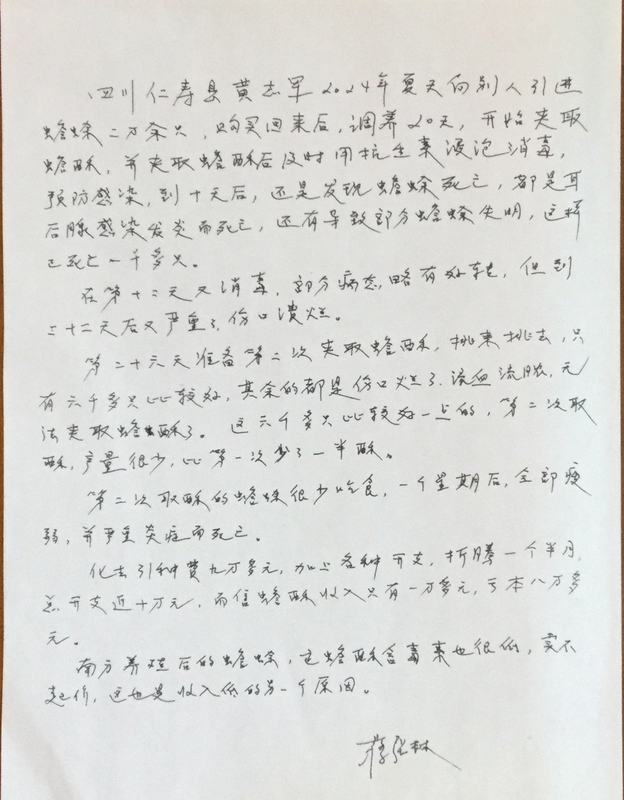 四川仁寿县黄志军2024年夏天向别人引进
蟾蜍二万余只，购买回来后，调养20天，开始夹取
蟾酥，并夹取蟾酥后及时用抗生素浸泡消毒，
预防感染，到十天后，还是发现蟾蜍死亡，都是耳
后腺感染发炎而死亡，还有导致部分蟾蜍失明，这样
已死亡一千多只。
在第十二天又消毒，部分病态略有好转，但到
二十二天后又严重了，伤口溃烂。
第二十六天准备第二次夹取蟾酥，挑来挑去，只
有六千多只比较好，其余的都是伤口烂了，流血流脓，无
法夹取蟾酥了。这六千多只比较好一点的，第二次取
酥，产量很少，比第一次少了一半酥。
第二次取酥的蟾蜍很少吃食，一个星期后，全部瘦
弱，并严重炎症而死亡。
化去引种费九万多元，加上各种开支，折腾一个半月，
总开支近十万元，而信蟾酥收入只有一万多元，亏本八万多
元。
南方养殖后的蟾蜍，它蟾酥含毒素也很低，卖不
起价，这也是收入低的另一个原因。